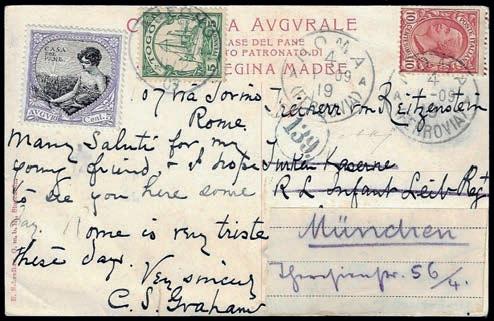 CARTOLINA AVGVRALE
CASE DEL PANE
PATRONATO DI
REGINA MADRE
CASA
DEL
PANE
AVGVR
Cent.
TOGO
5
10
ROMA
4
09
19
(FERROVIA)
4
09
(FERROVIA)
139
107 Via Torino
Rome.
Many Saluti for my
young friend & I hope
to see you here some
day. Rome is very triste
these days.
Very sincerely
C. S. Graham
Freiherr von Reitzenstein
Türken Kaserne
Infant Leib Reg
München
Theresienstr. 56/4.